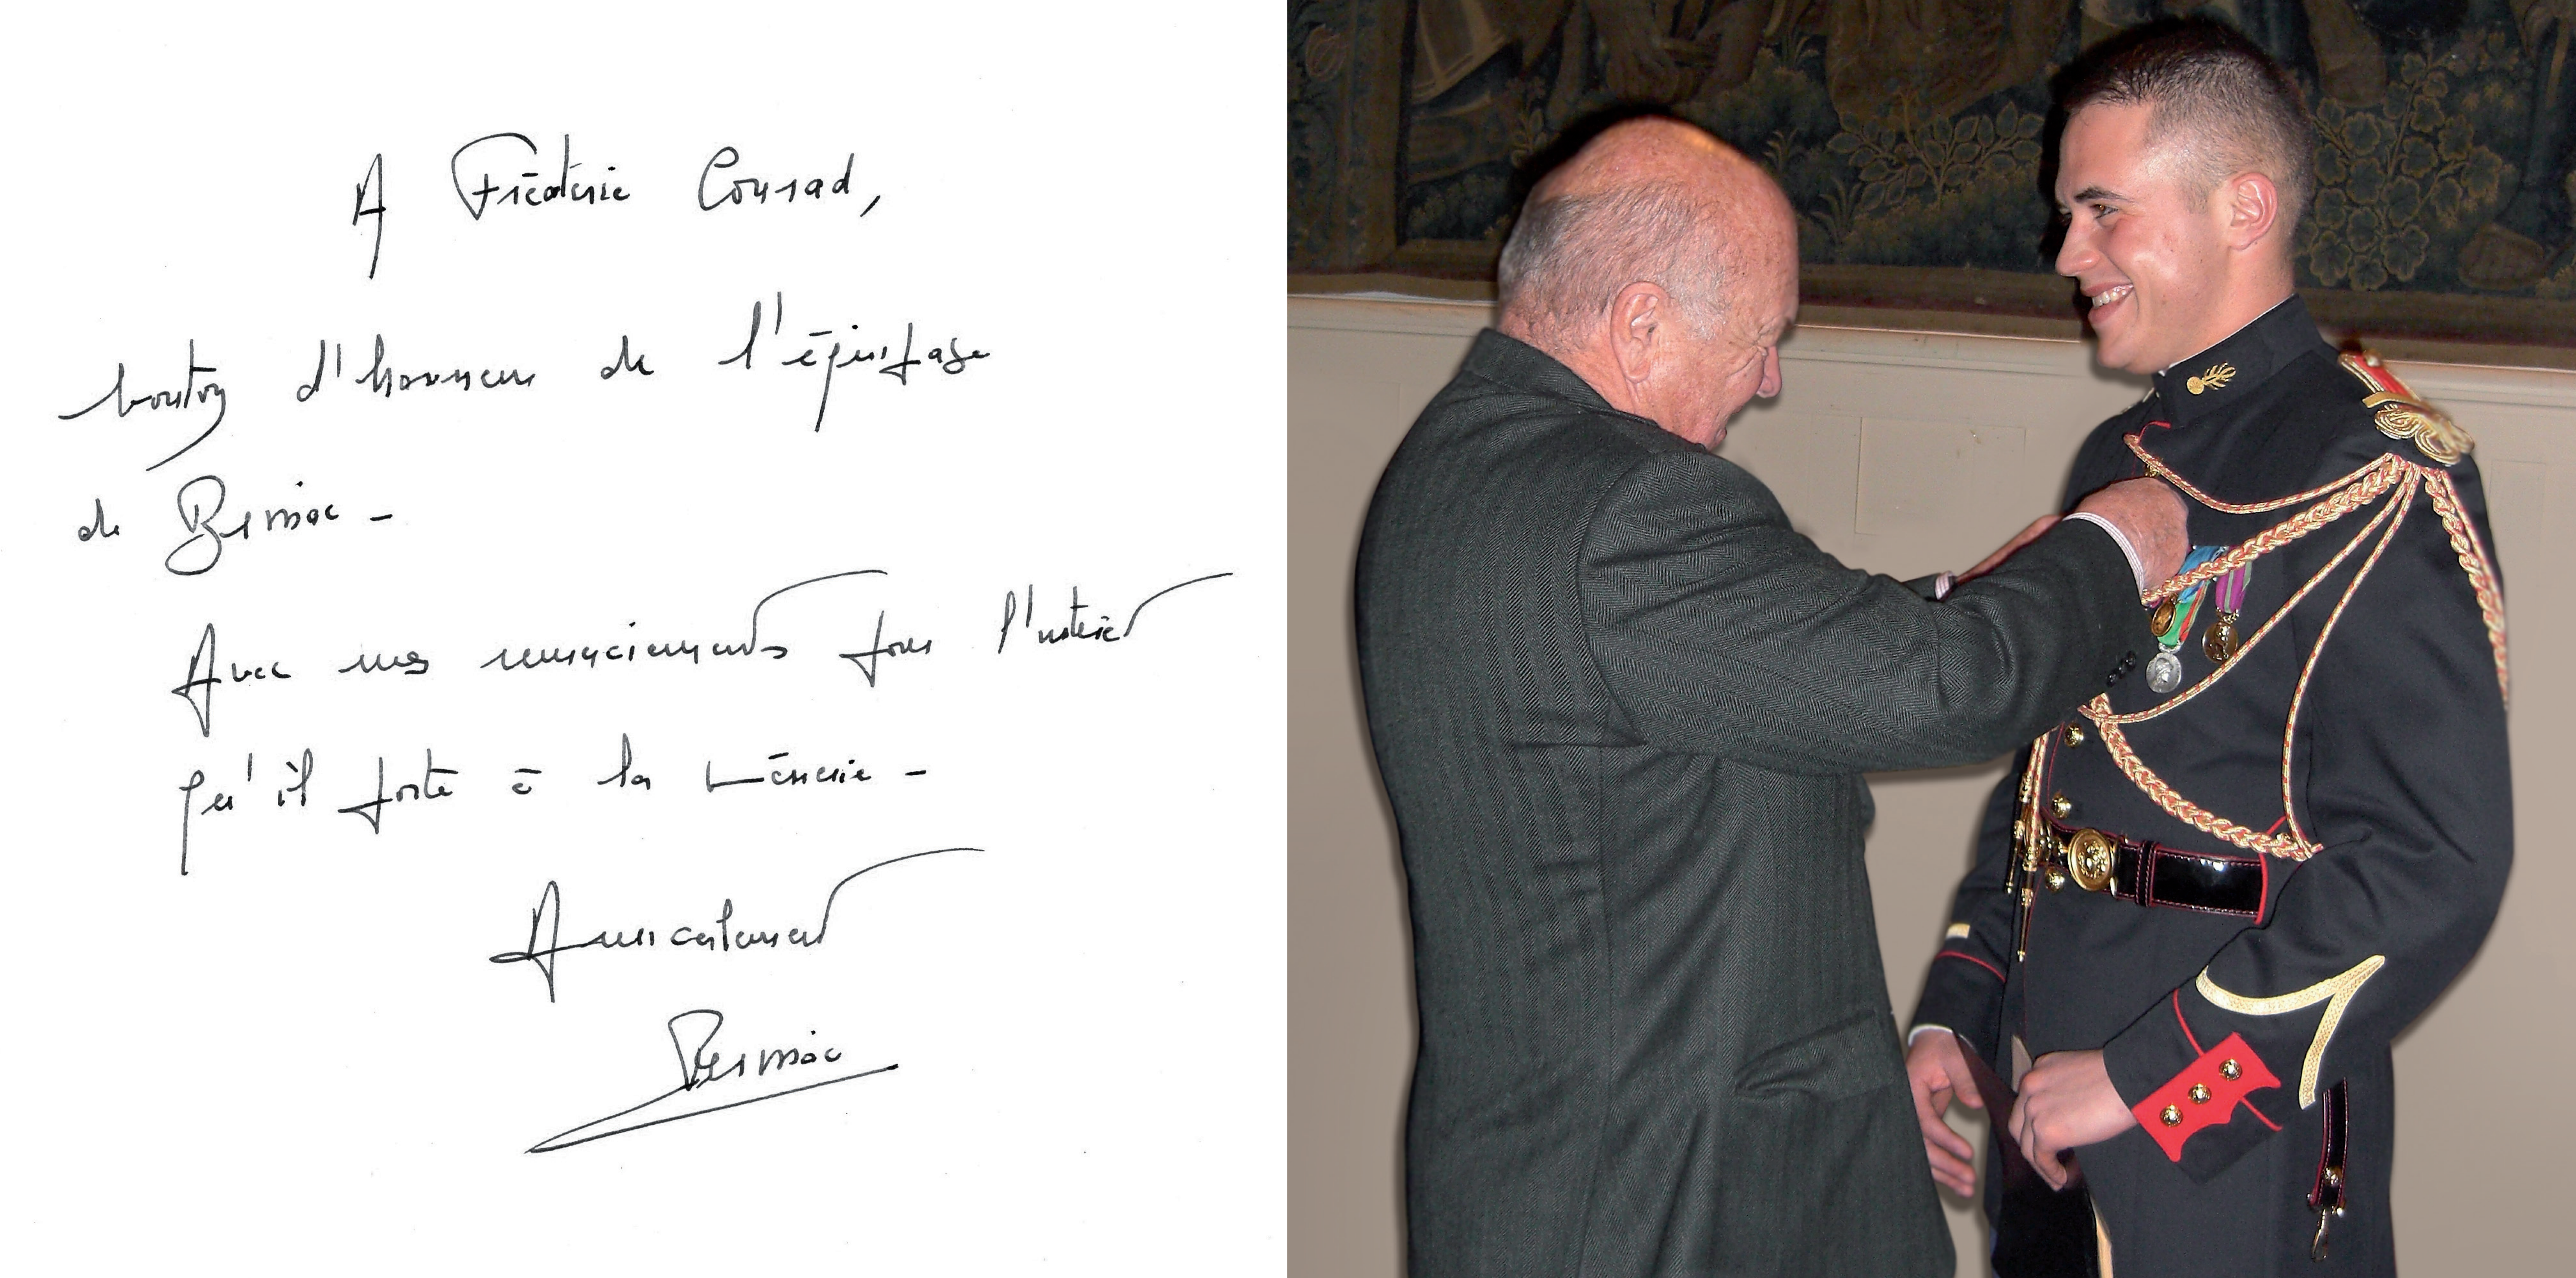 A Frédéric Conrad,
bouton d'honneur de l'équipage
de Bermac -
Avec mes remerciements pour l'intérêt
qu'il porte à la Vénerie -
Amicalement
Bermac